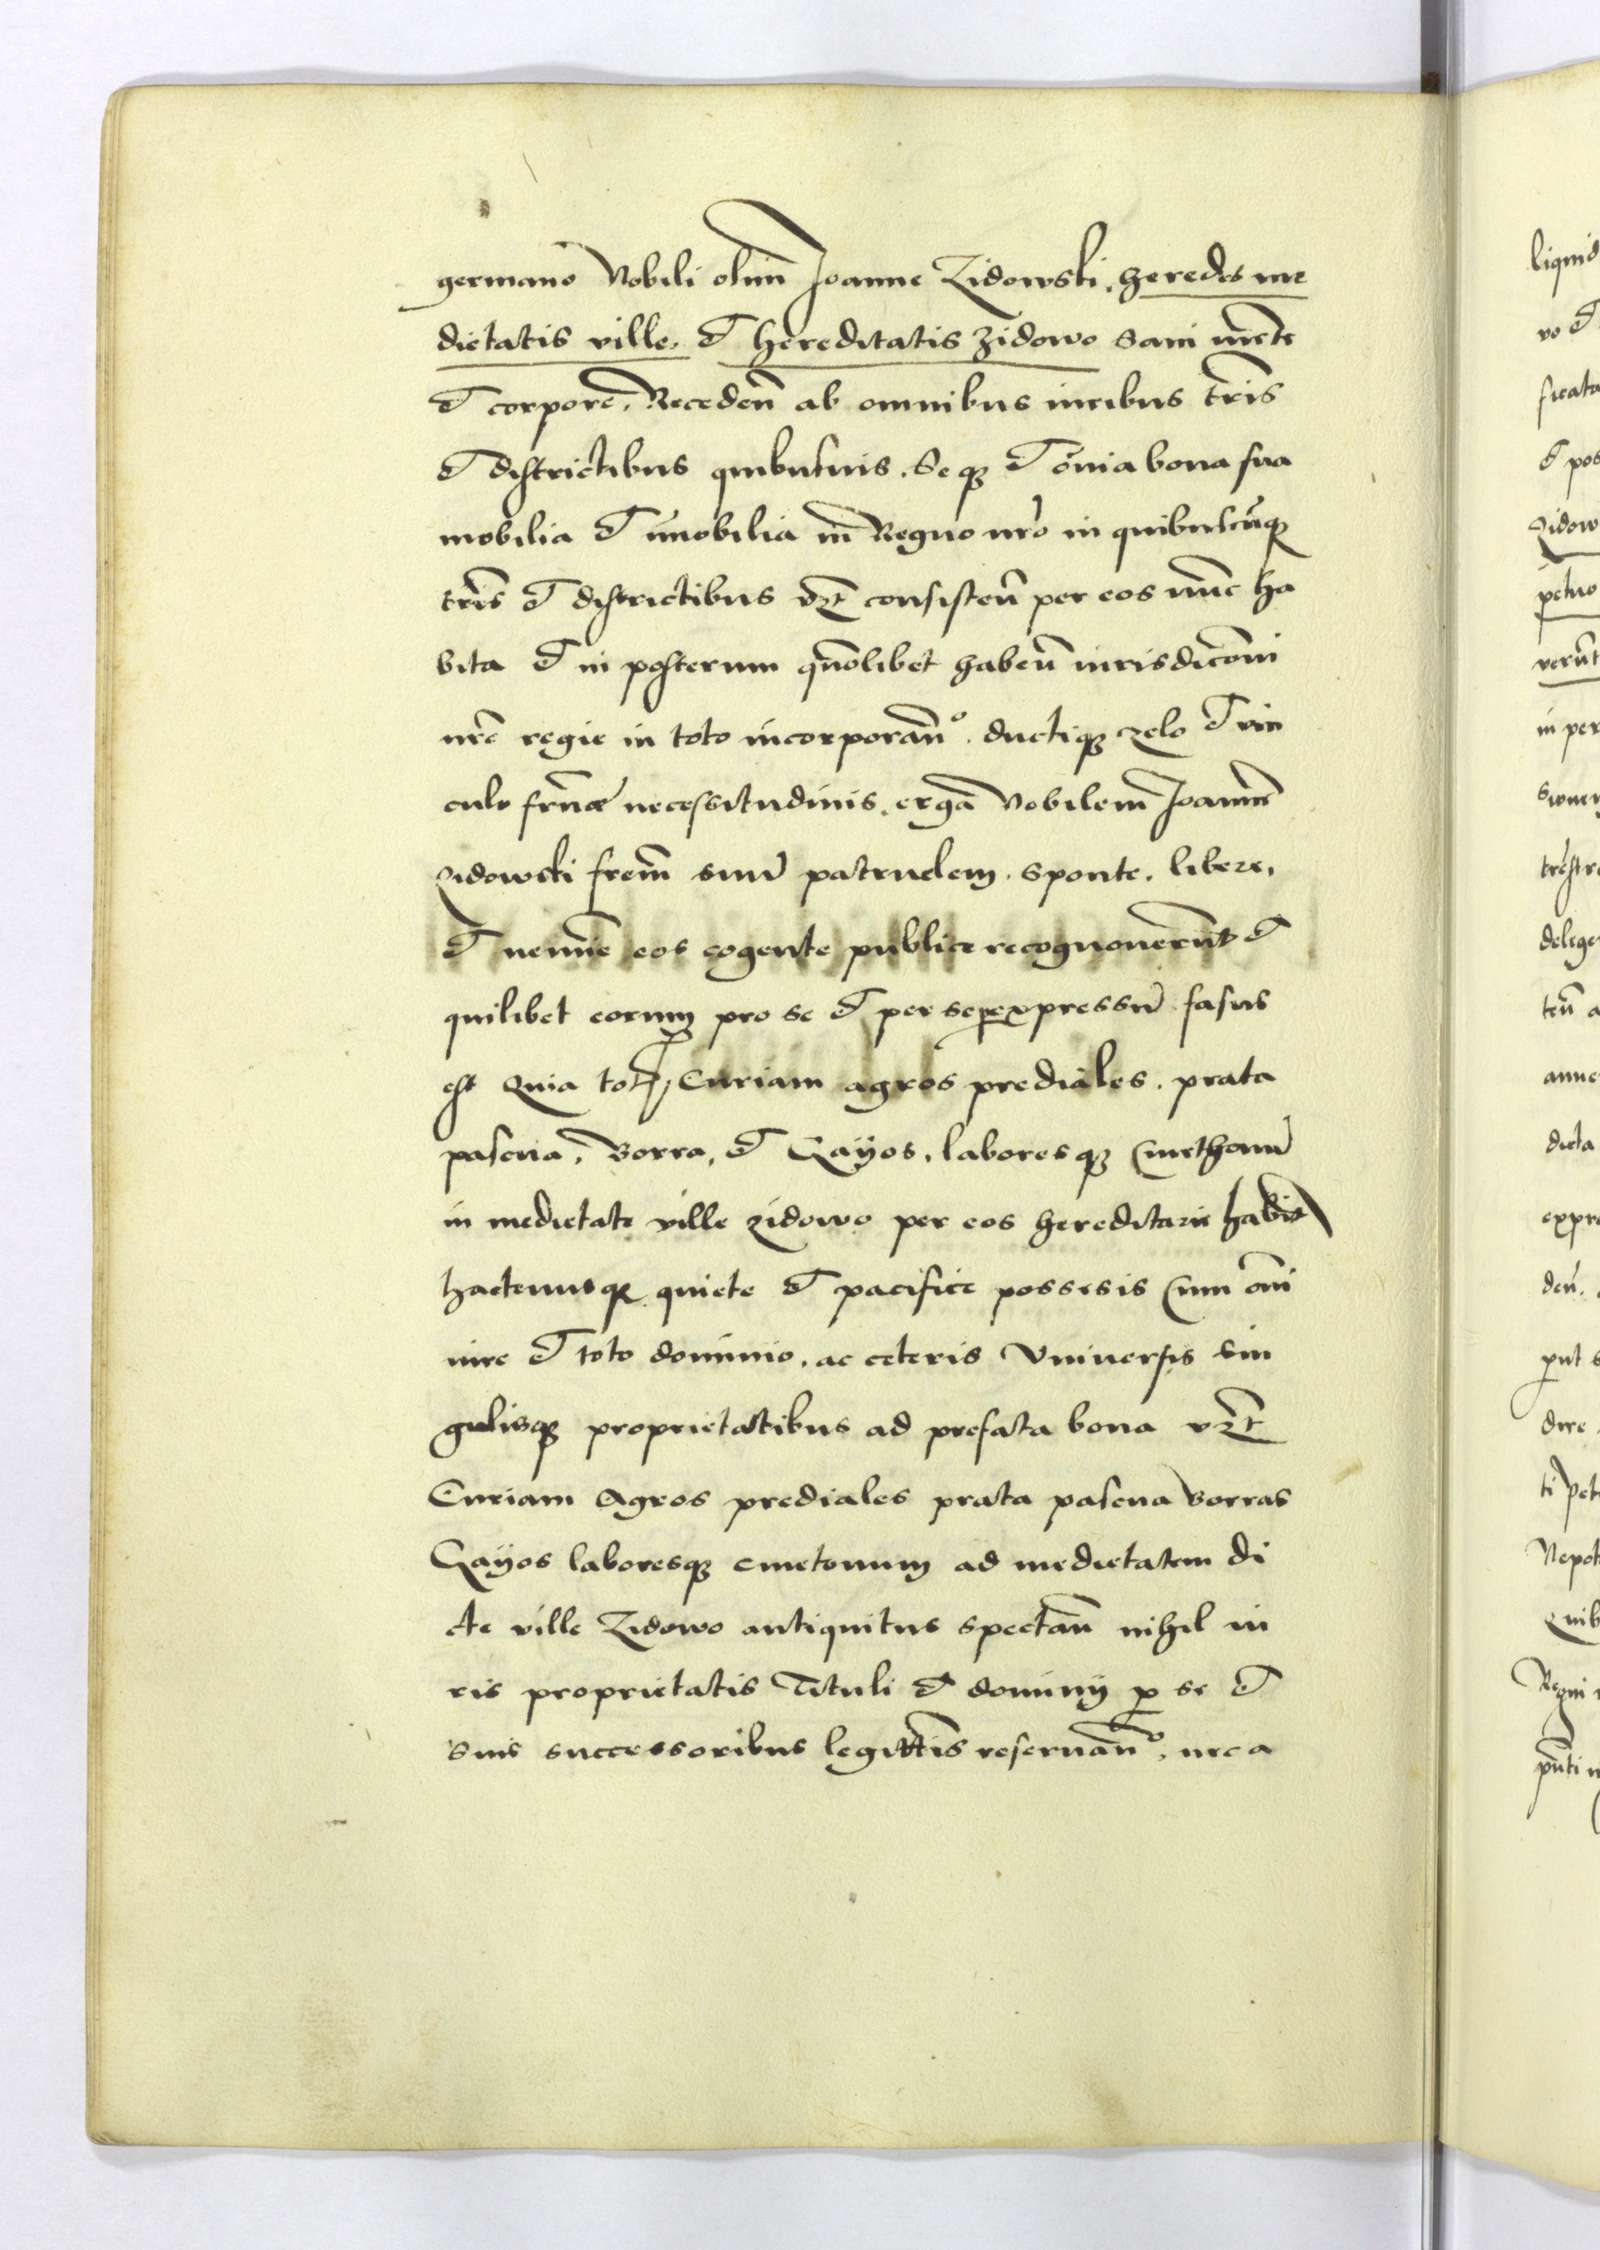 germano Nobili olim̄ Joanne Zidowski, heredes me
dietatis ville, et hereditatis Zidowo sani mēte
et corpore, Receden̄ ab omnibus iuribus tr̄is
et districtibus quibusuis. Se qꝫ et ōnia bona sua
mobilia et īmobilia in Regno nr̄o in quibuscūqꝫ
tr̄is et districtibus vꝫt consisten̄ per eos nunc ha
bita et in posterum quōlibet haben̄ iurisdicōni
nr̄e regie in toto incorporan̄º. ductiqꝫ zelo et vin
culo fr̄nae necessitudinis, erga Nobilem Joannē
Zidowski frem̄ suū patruelem. sponte, libere,
et nemīe eos cogente publice recognouerūt et
quilibet eorum pro se et per se expressū fassus
est Quia totā, Curiam agros prediales, prata
pascua, Borra, et Gayos, laboresqꝫ Cmethonū
in medietate ville Zidowo per eos hereditarie habit
hactenusqꝫ quiete et pacifice possesis Cum ōni
iure et toto dominio, ac ceteris Vniuersis sin
gulisqꝫ proprietatibus ad prefata bona vꝫt
Curiam Agros prediales prata pascua Borras
Gayos laboresqꝫ cmetonum ad medietatem di
cte ville Zidowo antiquitus spectan̄ nihil iu
ris proprietatis Tituli et dominij p̱ se et
suis successoribus legittīs reseruan̄º, nec a
liquid
vo et
et pos
Zidow
petuo
verūt
in per
delege
ten̄ a
anne
dicta
expre
den̄.
dire
ti pet
Nepot
Quib
Regni